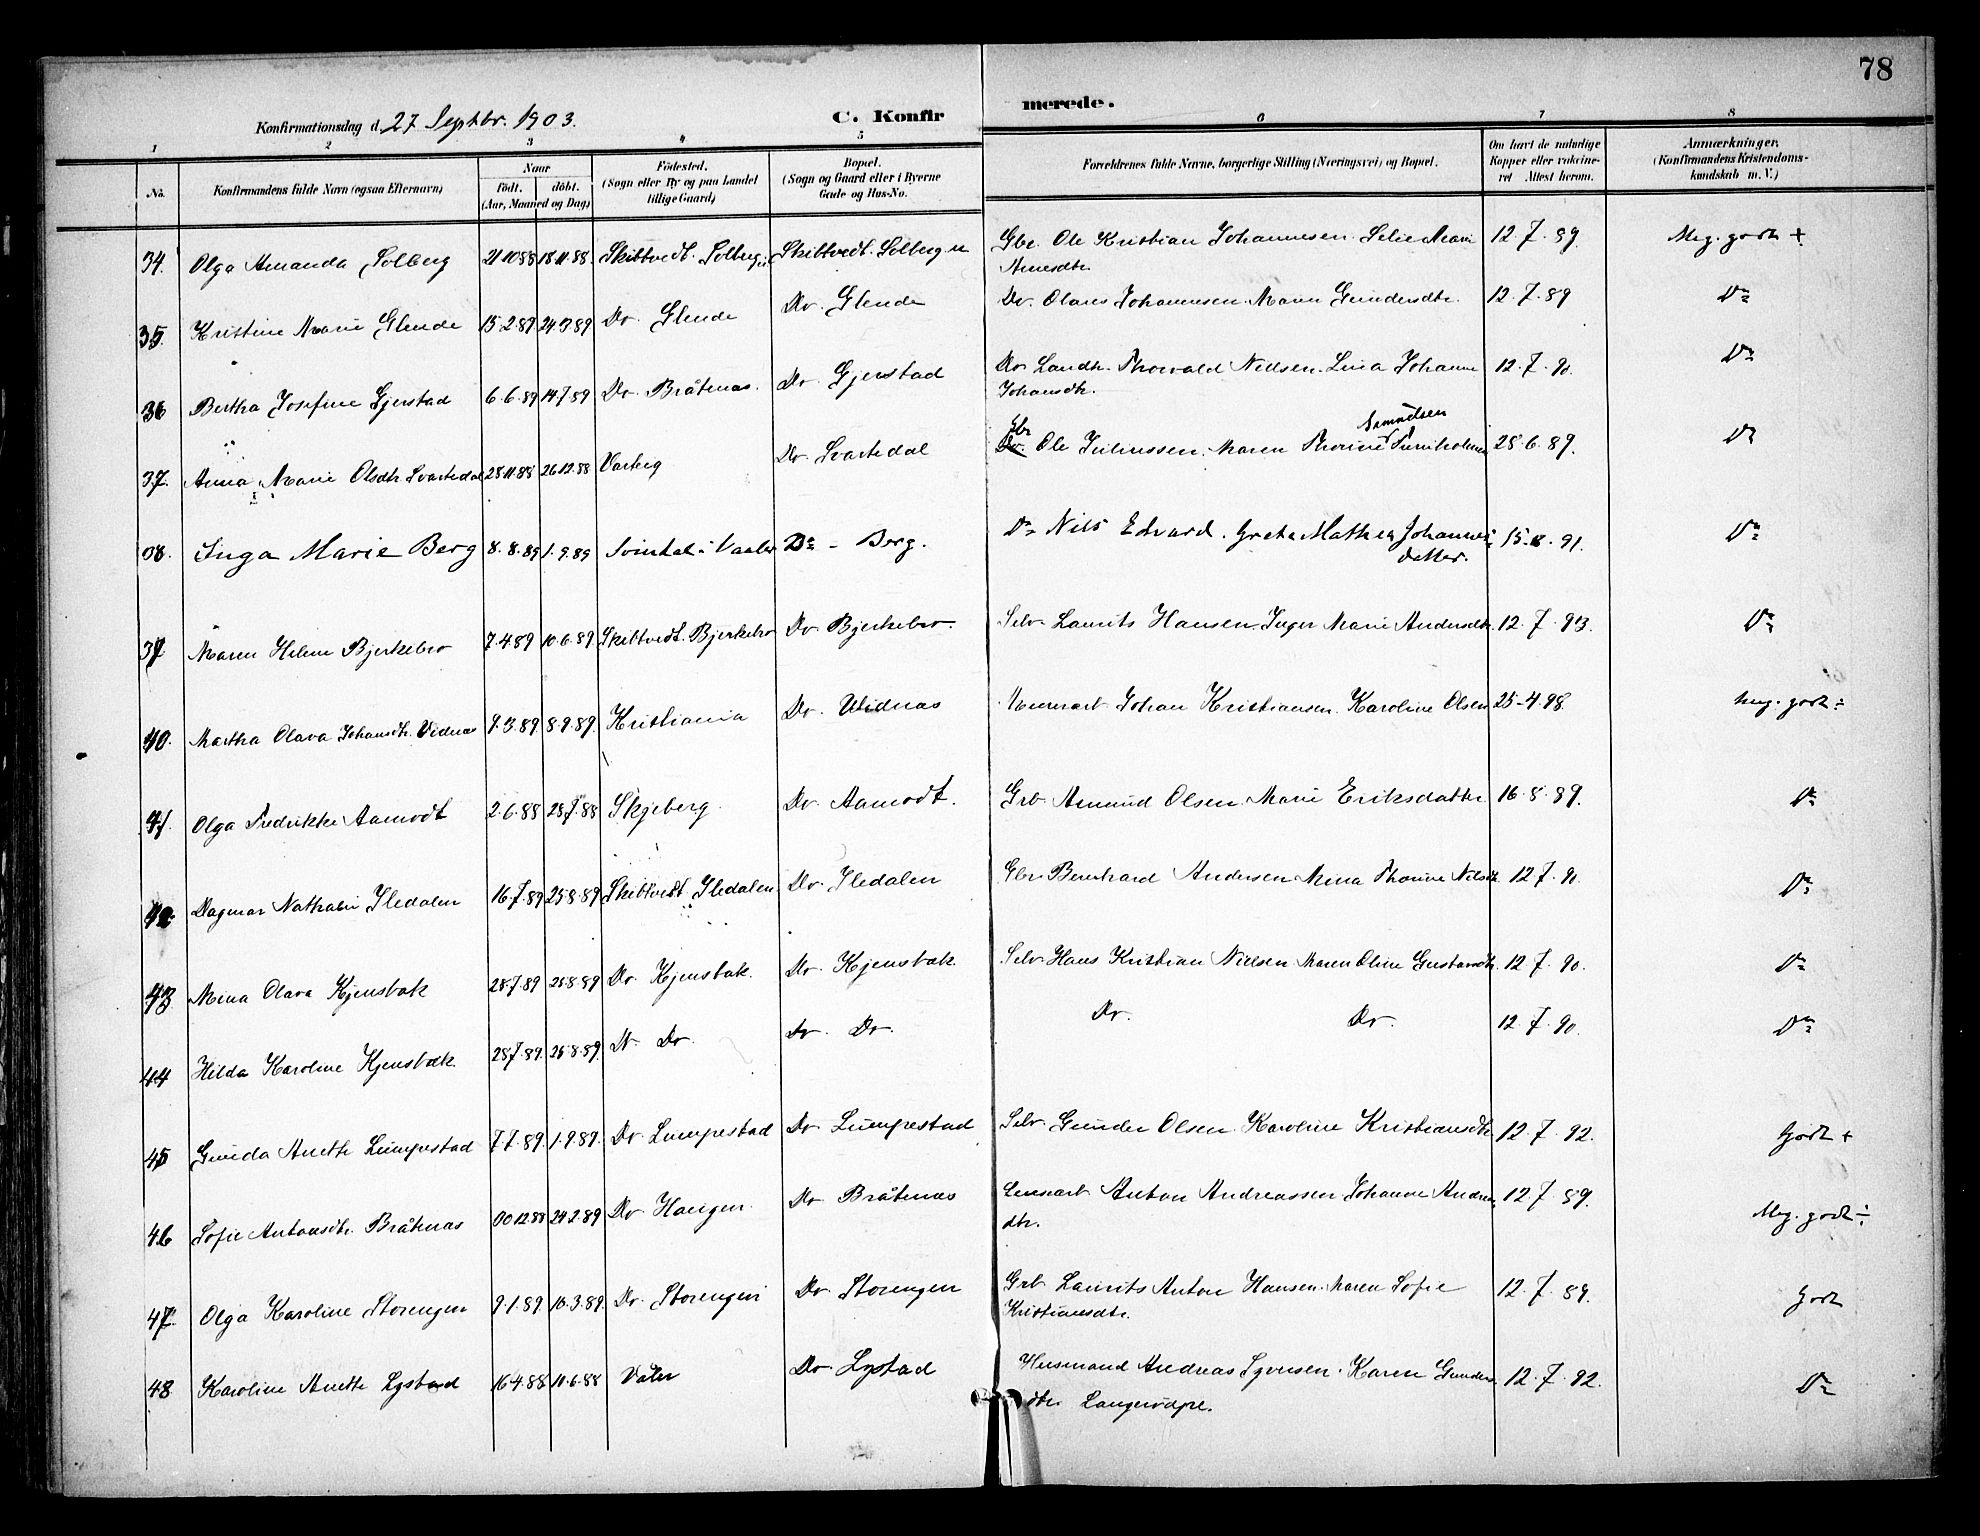 78
Konfirmationsdag d. 27 Septbr. 1903. C. Konfirmerede.
1 2 3 4 5 6 7 8
No. Konfirmandens fulde Navn (ogsaa Efternavn) Naar født. døbt. (Aar, Maaned og Dag) Fødested. (Sogn eller By og paa Landet tillige Gaard) Bopæl. (Sogn og Gaard eller i Byerne Gade og Hus-No. Forældrenes fulde Navne, borgerlige Stilling (Næringsvei) og Bopæl. Om havt de naturlige Kopper eller vakcineret Attest herom. Anmærkninger. (Konfirmandens Kristendomskundskab m. V.)
34. Olga Amanda Solberg 21 10 88 18.11.88. Skibtvedt. Solberg Skibtvedt. Solberg Gbr. Ole Kristian Johannesen. Marie 12.7.89 Meg. godt +
Arnesdtr.
35. Kristine Marie Glende 15.2.89 24.3.89 Do. Glende Do. Glende Do. Olaves Johannesen. Maren Gundersdtr. 12.7.89 Do
36 Bertha Josefine Gjerstad 6.6.89 14.7.89 Do. Bråtenas. Do. Gjerstad Do Landh. Thorvald Nielsen. Lina Johanne 12.7.90. Do
Johansdtr.
37. Anna Marie Olsdtr. Svartedal 28.11.88 26.12.88 Varteig Do. Svartedal Gbr Ole Juliussen. Maren Thorine Samuelsen 28.6.89. Do
38. Inga Marie Berg 8.8.89 1.9.89 Svindal i Vaaler Do - Berg. Do Nils Edvard. Grete Mathea Johannes- 15. 91. Do
datter.
39 Maren Helene Bjerkebro 7.4.89 10.6.89 Skibtvedt. Bjerkebro Do Bjerkebro. Selv. Laurits Hansen. Inger Marie Andersdtr. 12.7.93. Do
40. Martha Olava Johansdtr. Vidnas 9.3.89 8.9.89. Kristiania Do. Vidnas Murerarb Johan Kristiansen. Karoline Olsen 25-4.98. Meg. godt ÷
41. Olga Fredrikke Aamodt 2.6.88 28.7.88 Skjeberg. Do Aamodt. Grb. Amund Olsen. Marie Eriksdatter 16.8.89. Do
42. Dagmar Nathalie Iledalen 16.7.89 25.8.89 Skibtvedt Iledalen Do. Iledalen Gbr. Bernhard Andersen Mina Thorine Nilsdtr. 12.7.90. Do
43 Mina Olava Kjensbak 28.7.89 25.8.89 Do. Kjensbak. Do. Kjensbak. Selv. Hans Kristian Nielsen Maren Oline Gustavsdtr. 12.7.90. Do
44 Hilda Karoline Kjensbak. 28.7.89. 25.8.89. Do Do. Do. Do. Do. Do. 12.7.90. Do
45 Gunda Anette Lumpestad 7.7.89. 1.9.89. Do. Lumpestad Do Lumpestad Selv. Gunder Olsen. Karoline Kristiansdtr. 12.7.92. Godt +
46 Sofie Antonsdtr. Bråtenas 12.88 24.2.89 Do. Haugen. Do Bråtenas Anton Andreassen. Johanne Andreas- 12.7.89. Meg. godt ÷
dtr.
47. Olga Karoline Storengen 9.1.89. 10.3.89. Do. Storengen Do Storengen Grb. Laurits Anton Hansen. Maren Sofie 12.7.89. Godt
Kristiansdtr.
48 Karoline Anette Lystad 16.4.88 10.6.88 Våler Do. Lystad Husmand Andreas Syversen. Karen Gunders- 12.7.92. Do
dtr.